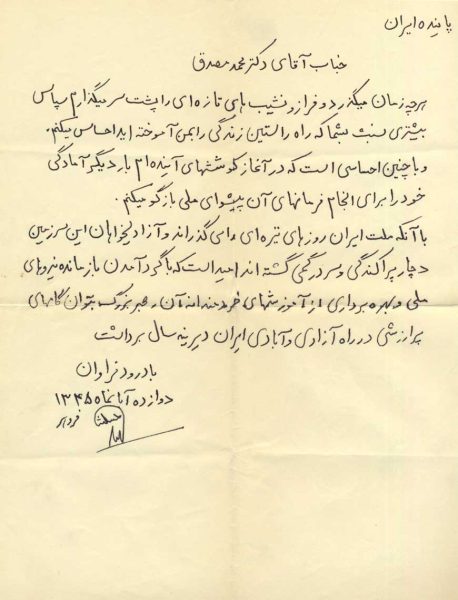 پاینده ایران
جناب آقای دکتر محمد مصدق
هر چه زمان میگذرد و فراز و نشیب های تازه ای را پشت سر میگذارم سپاس
بیشتری نسبت بشما که راه راستین زندگی را بمن آموخته اید احساس میکنم.
و با چنین احساسی است که در آغاز کوششهای آینده ام بار دیگر آمادگی
خود را برای انجام فرمانهای آن پیشوای ملی بازگو میکنم.
با آنکه ملت ایران روزهای تیره ای را میگذراند و آزادیخواهان این سرزمین
دچار پراکندگی و سردرگمی گشته اند امید است که با گرد آمدن بازمانده نیروهای
ملی و بهره برداری از آموزشهای خردمندانه آن رهبر بزرگ بتوان گامهای
پرارزشی در راه آزادی و آبادی ایران دیرینه سال برداشت
با درود فراوان
دوازده آبانماه ۱۳۴۵
فروهر